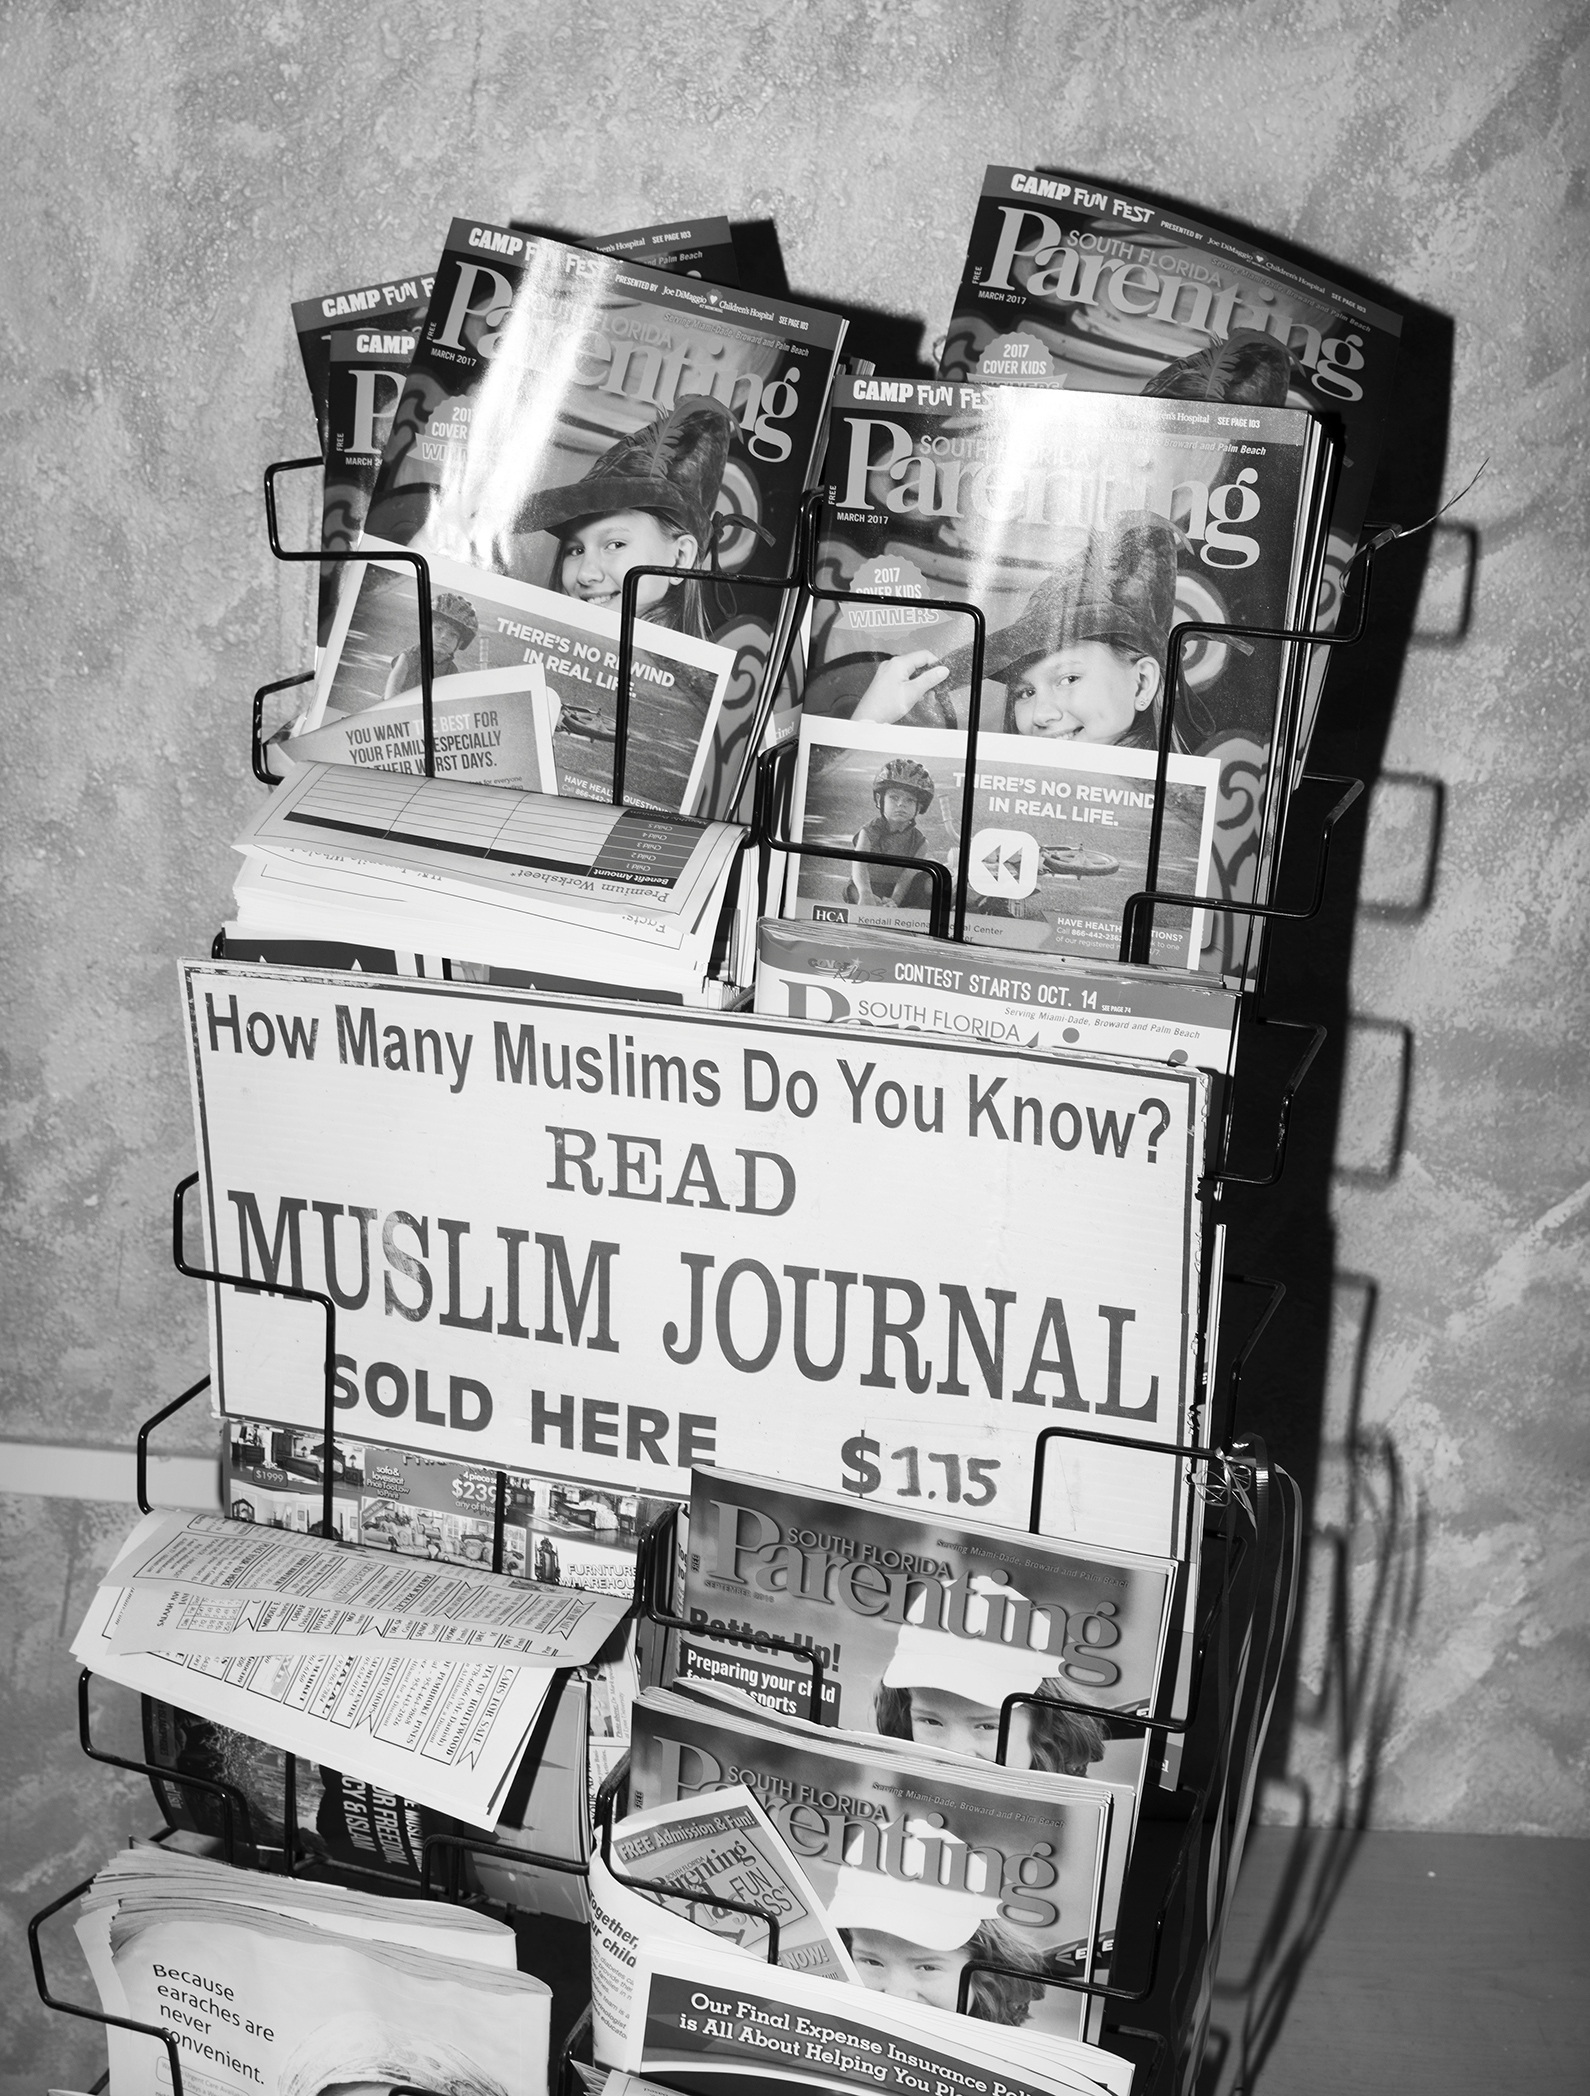 CAMP FUN FEST PRESENTED BY Joe DiMaggio Children's Hospital SEE PAGE 103
Serving Miami-Dade, Broward and Palm Beach
SOUTH FLORIDA
Parenting
FREE
MARCH 2017
2017
COVER KIDS
en's Hospital SEE PAGE 103
and Palm Beach
CAMP FUN F
CAMP
P
FREE
MARCH 2
CAMP FUN FEST PRESENTED BY Joe DiMaggio Children's Hospital SEE PAGE 103
Serving Miami-Dade, Broward and Palm Beach
FLORIDA
Parenting
FREE
MARCH 2017
201
COVER
WINNERS
THERE'S NO REWIND
IN REAL LIFE.
YOU WANT THE BEST FOR
YOUR FAMILY ESPECIALLY
THEIR WORST DAYS.
for everyone
HAVE HEAL QUESTION
Call 866-442-2
CAMP FUN FES en's Hospital SEE PAGE 103
Broward and Palm Beach
SOUTH
Parenting
FREE
MARCH 2017
2017
COVER KIDS
WINNERS
THERE'S NO REWIND
IN REAL LIFE.
HCA Kendall Regional Center
HAVE HEALTH TIONS?
Call 866-442-2362
of our registered to one
Child 5
Child 4
Child 3
Child 2
Child 1
Benefit Amount
Premium Worksheet*
Facts:
COVER KIDS CONTEST STARTS OCT. 14 SEE PAGE 74
SOUTH FLORIDA Serving Miami-Dade, Broward and Palm Beach
How Many Muslims Do You Know?
READ
MUSLIM JOURNAL
SOLD HERE $1.75
$1999
sofa &
loveseat
Price Too Low
to Print
4 piece
$239
any of the
FURNITURE
WAREHOU
SOUTH FLORIDA Serving Miami-Dade, Broward and Palm Beach
Parenting
FREE
SEPTEMBER 2016
Batter Up!
Preparing your child
for sports
CARS FOR SALE
OF HOLLYWOOD
PEMBROKE PINES
OR FREEDOM
CY & ISLAM
SOUTH FLORIDA Serving Miami-Dade, Broward and Palm Beach
Parenting
FREE
FREE Admission & Fun!
SOUTH FLORIDA
Parenting
FUN
PASS
NOW!
Together,
ur child
Because
earaches are
never
convenient.
Our Final Expense Insurance Pol
is All About Helping You Pl